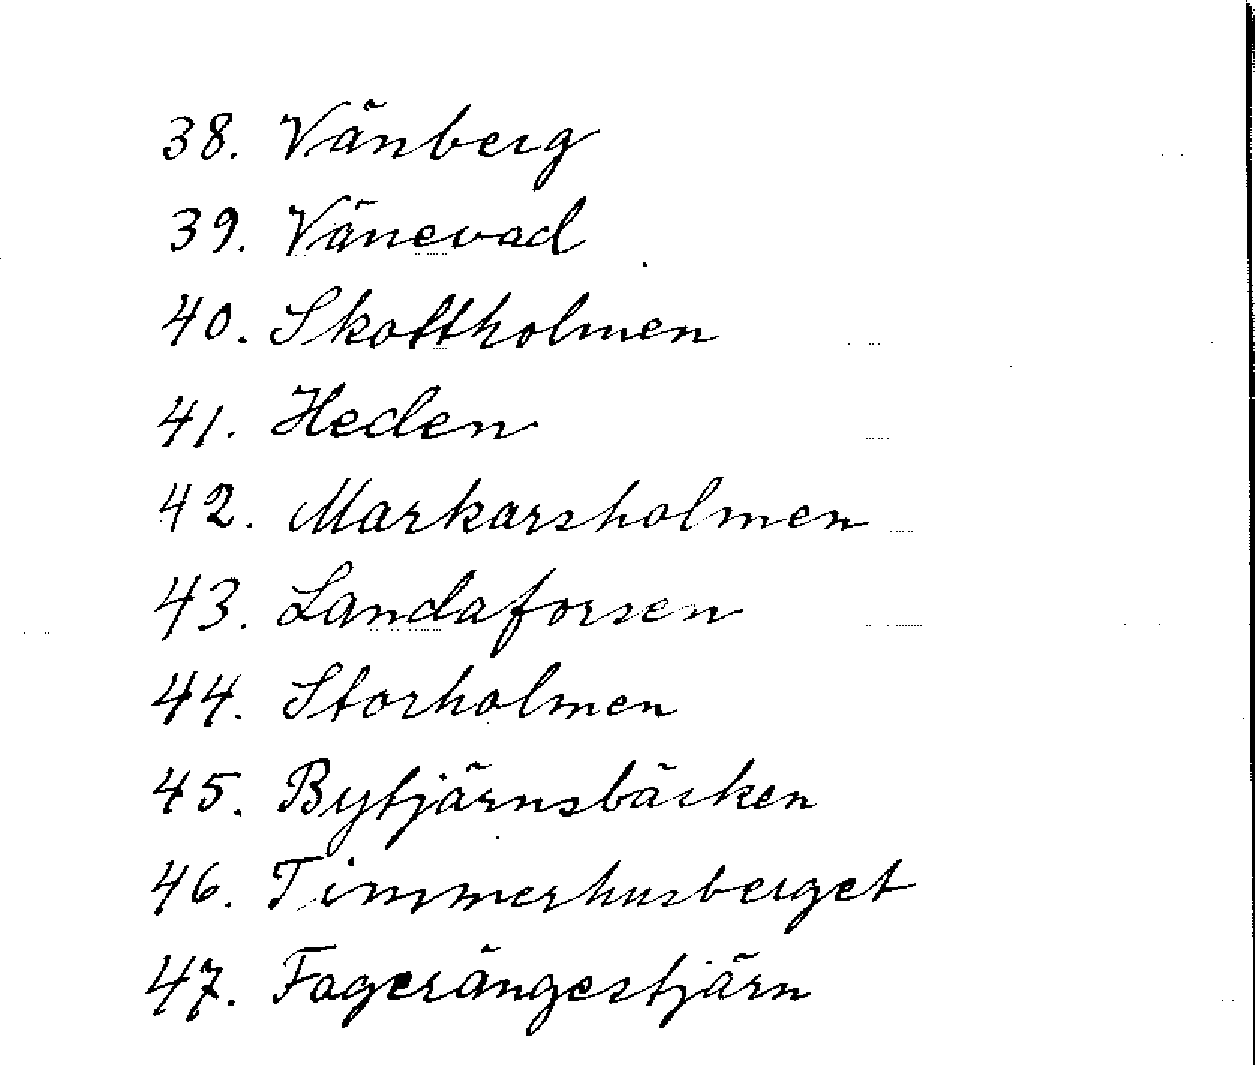 38. Vänberg
39. Vänevad
40. Skottholmen
41. Heden
42. Markarsholmen
43. Landaforsen
44. Storholmen
45. Bytjärnsbäcken
46. Timmerhusberget
47. Fagerängestjärn